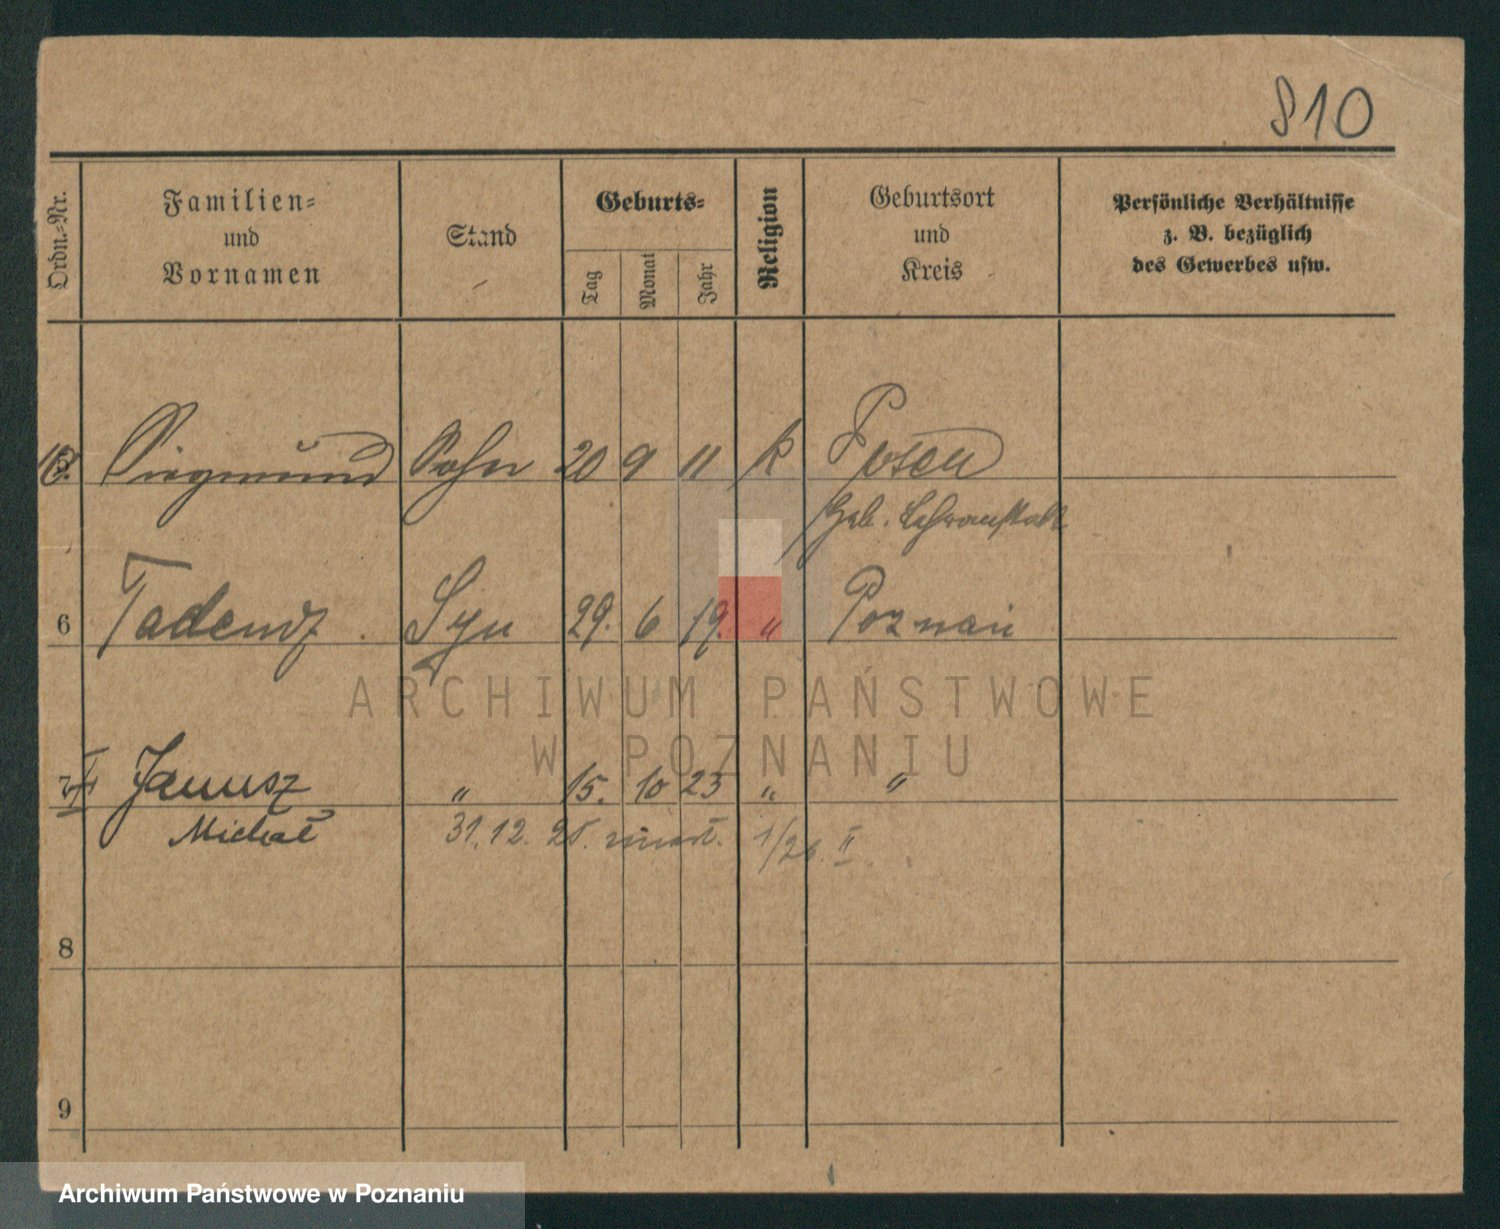 810
Ordn.-Nr.
Familien-
und
Vornamen
Stand
Geburts-
Tag
Monat
Jahr
Religion
Geburtsort
und
Kreis
Persönliche Verhältnisse
z. B. bezüglich
des Gewerbes usw.
Siegmund Sohn 20 9 11 k Posen
Geb. Lehranstalt
6 Tadeusz. Syn 29. 6 19. " Poznań
ARCHIWUM PAŃSTWOWE
W POZNANIU
7 Janusz " 15. 10 23 " "
Michał 31.12. 25. 1/26. II
8
9
Archiwum Państwowe w Poznaniu